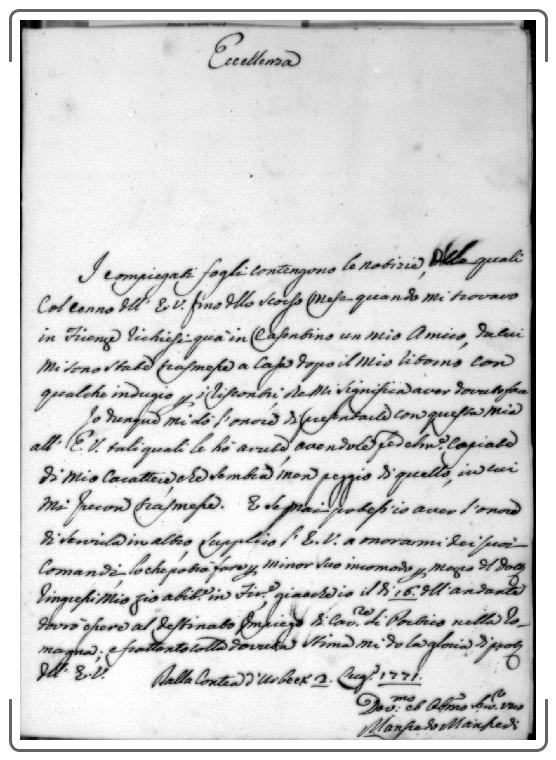 Eccellenza
I compiegati fogli contengono le notizie, delle quali
col cenno dell' E.V. fino dello scorso Mese quando mi trovavo
in Firenze richiesi quà in Casentino un mio Amico, da cui
mi sono state trasmesse a Casa dopo il mio ritorno con
qualche indugio p i riscontri che mi significa aver dovuto fare
Io dunque mi dò l'onore di presentarle con questa mia
all' E.V. tali quali le hò avute avendole copiate
di mio Carattere, che sembra men peggio di quello, in cui
mi furon trasmesse. E se mai potess'io aver l'onore
di servirla in altro supplico l' E.V. a onorarmi dei suoi
Comandi, lo che potrà fare p minor suo incomodo p mezzo del
mio zio abit.e in Fir.e giacche io il di 16. dell' andante
dovrò essere al destinato Impiego di di Portico nella Ro-
magna; e frattanto colla dovuta stima mi do la gloria di
dell' E.V.
Dalla Contea d'Urbech 2. 1771.
Dev.mo ed Obb.mo Ser.e vero
Manfredo Manfredi